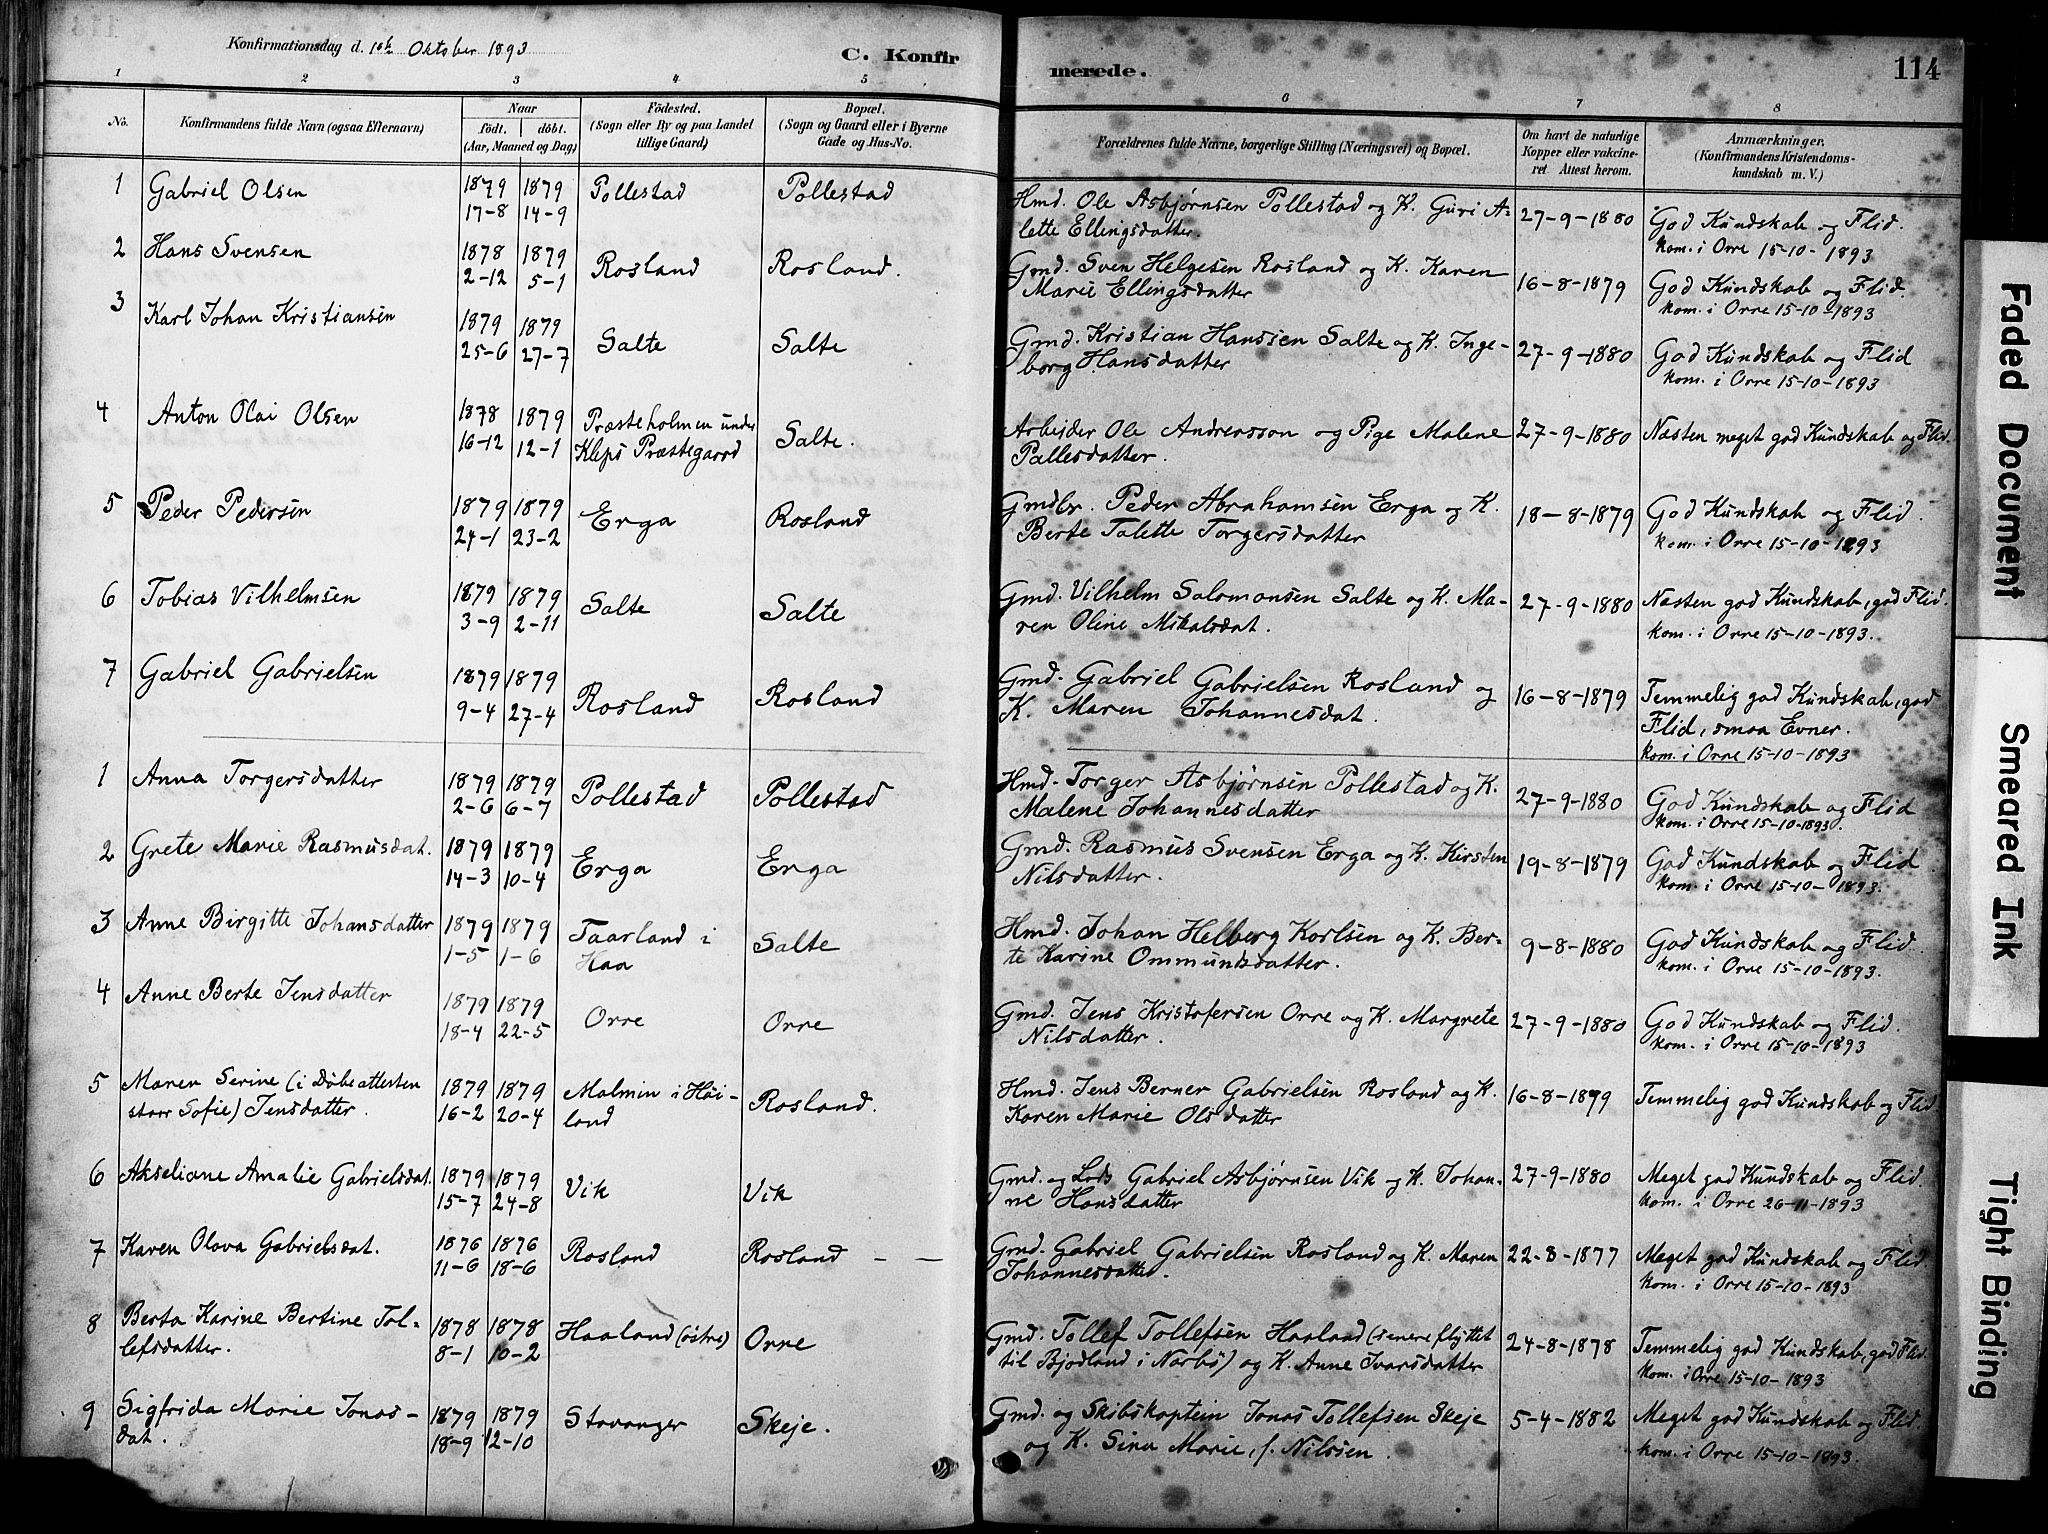 Konfirmationsdag d. 1ste Oktober 1893
C. Konfir
merede.
114
1 2 3 4 5 6 7 8
No.
Konfirmandens fulde Navn (ogsaa Efternavn)
Naar
født. døbt.
(Aar, Maaned og Dag)
Fødested.
(Sogn eller By og paa Landet
tillige Gaard)
Bopæl.
(Sogn og Gaard eller i Byerne
Gade og Hus-No.
Forældrenes fulde Navne, borgerlige Stilling (Næringsvei) og Bopæl.
Om havt de naturlige
Kopper eller vakcine-
ret Attest herom.
Anmærkninger,
(Konfirmandens Kristendoms-
kundskab m. V.)
1 Gabriel Olsen 1879 1879 Pollestad Pollestad
17-8 14-9
Hmd. Ole Asbjørnsen Pollestad og K. Guri A- 27-9-1880 God Kundskab og Flid.
lette Ellingsdatter. kom. i Orre 15-10-1893
2 Hans Svensen 1878 1879 Rosland Rosland.
2-12 5-1
Gmd. Sven Helgesen Rosland og K. Karen 16-8-1879 God Kundskab og Flid.
Marie Ellingsdatter kom. i Orre 15-10-1893
3 Karl Johan Kristiansen 1879 1879 Salte Salte
25-6 27-7
Gmd. Kristian Hansen Salte og K. Inge- 27-9-1880 God Kundskab og Flid
borg Hansdatter kom. i Orre 15-10-1893
4 Anton Olai Olsen 1878 1879 Præsteholmen under Salte.
16-12 12-1 Kleps Præstegaard
Arbejder Ole Andreasson og Pige Malene 27-9-1880 Næsten meget god Kundskab og Flid.
Pallesdatter.
5 Peder Pedersen 1879 1879 Erga Rosland
24-1 23-2
Gmdbr. Peder Abrahamsen Erga og K. 18-8-1879 God Kundskab og Flid.
Berte Talette Torgersdatter kom. i Orre 15-10-1893
6 Tobias Vilhelmsen 1879 1879 Salte Salte
3-9 2-11
Gmd. Vilhelm Salomonsen Salte og K. Ma- 27-9-1880 Næsten god Kundskab, god Flid.
ren Oline Mikalsdat. kom. i Orre 15-10-1893.
7 Gabriel Gabrielsen 1879 1879 Rosland Rosland
9-4 27-4
Gmd. Gabriel Gabrielsen Rosland og 16-8-1879 Temmelig god Kundskab, god
K. Maren Johannesdat. Flid, smaa Evner.
kom. i Orre 15-10-1893
1 Anna Torgersdatter 1879 1879 Pollestad Pollestad
2-6 6-7
Hmd. Torger Asbjørnsen Pollestad og K. 27-9-1880 God Kundskab og Flid
Malene Johannesdatter kom. i Orre 15-10-1893.
2 Grete Marie Rasmusdat. 1879 1879 Erga Erga
14-3 10-4
Gmd. Rasmus Svensen Erga og K. Kirsten 19-8-1879 God Kundskab og Flid
Nilsdatter. kom. i Orre 15-10-1893.
3 Anne Birgitte Johansdatter 1879 1879 Taarland i Salte
1-5 1-6 Haa
Hmd. Johan Helberg Korlsen og K. Ber- 9-8-1880 God Kundskab og Flid.
te Karine Ommundsdatter. kom. i Orre 15-10-1893.
4 Anne Berte Jensdatter 1879 1879 Orre Orre
18-4 22-5
Gmd. Jens Kristofersen Orre og K. Margrete 27-9-1880 God Kundskab og Flid.
Nilsdatter. kom. i Orre 15-10-1893
5 Maren Serine (i Døbeattesten 1879 1879 Malmin i Høi- Rosland.
staar Sofie) Jensdatter. 16-2 20-4 land
Hmd. Jens Berner Gabrielsen Rosland og K. 16-8-1879 Temmelig god Kundskab og Flid
Karen Marie Olsdatter
6 Akseliane Amalie Gabrielsdat. 1879 1879 Vik Vik
15-7 24-8
Gmd. og Lods Gabriel Asbjørnsen Vik og K. Johan- 27-9-1880 Meget god Kundskab og Flid.
ne Hansdatter kom. i Orre 26-11-1893
7 Karen Olava Gabrielsdat. 1876 1876 Rosland Rosland - -
11-6 18-6
Gmd. Gabriel Gabrielsen Rosland og K. Maren 22-8-1877 Meget god Kundskab og Flid
Johannesdatter. kom. i Orre 15-10-1893
8 Berta Karine Bertine Tol- 1878 1878 Haaland (østre) Orre
lefsdatter. 8-1 10-2
Gmd. Tollef Tollefsen Haaland (senere flyttet 24-8-1878 Temmelig god Kundskab, god Flid.
til Bjodland i Nærbø) og K. Anne Ivarsdatter kom. i Orre 15-10-1893
9 Sigfrida Marie Jonas- 1879 1879 Stavanger Skeje.
dat. 18-9 12-10
Gmd. og Skibskaptein Jonas Tollefsen Skeje 5-4-1882 Meget god Kundskab og Flid.
og K. Sina Marie, f. Nilssen. kom. i Orre 15-10-1893.
Faded Document
Smeared Ink
Tight Binding